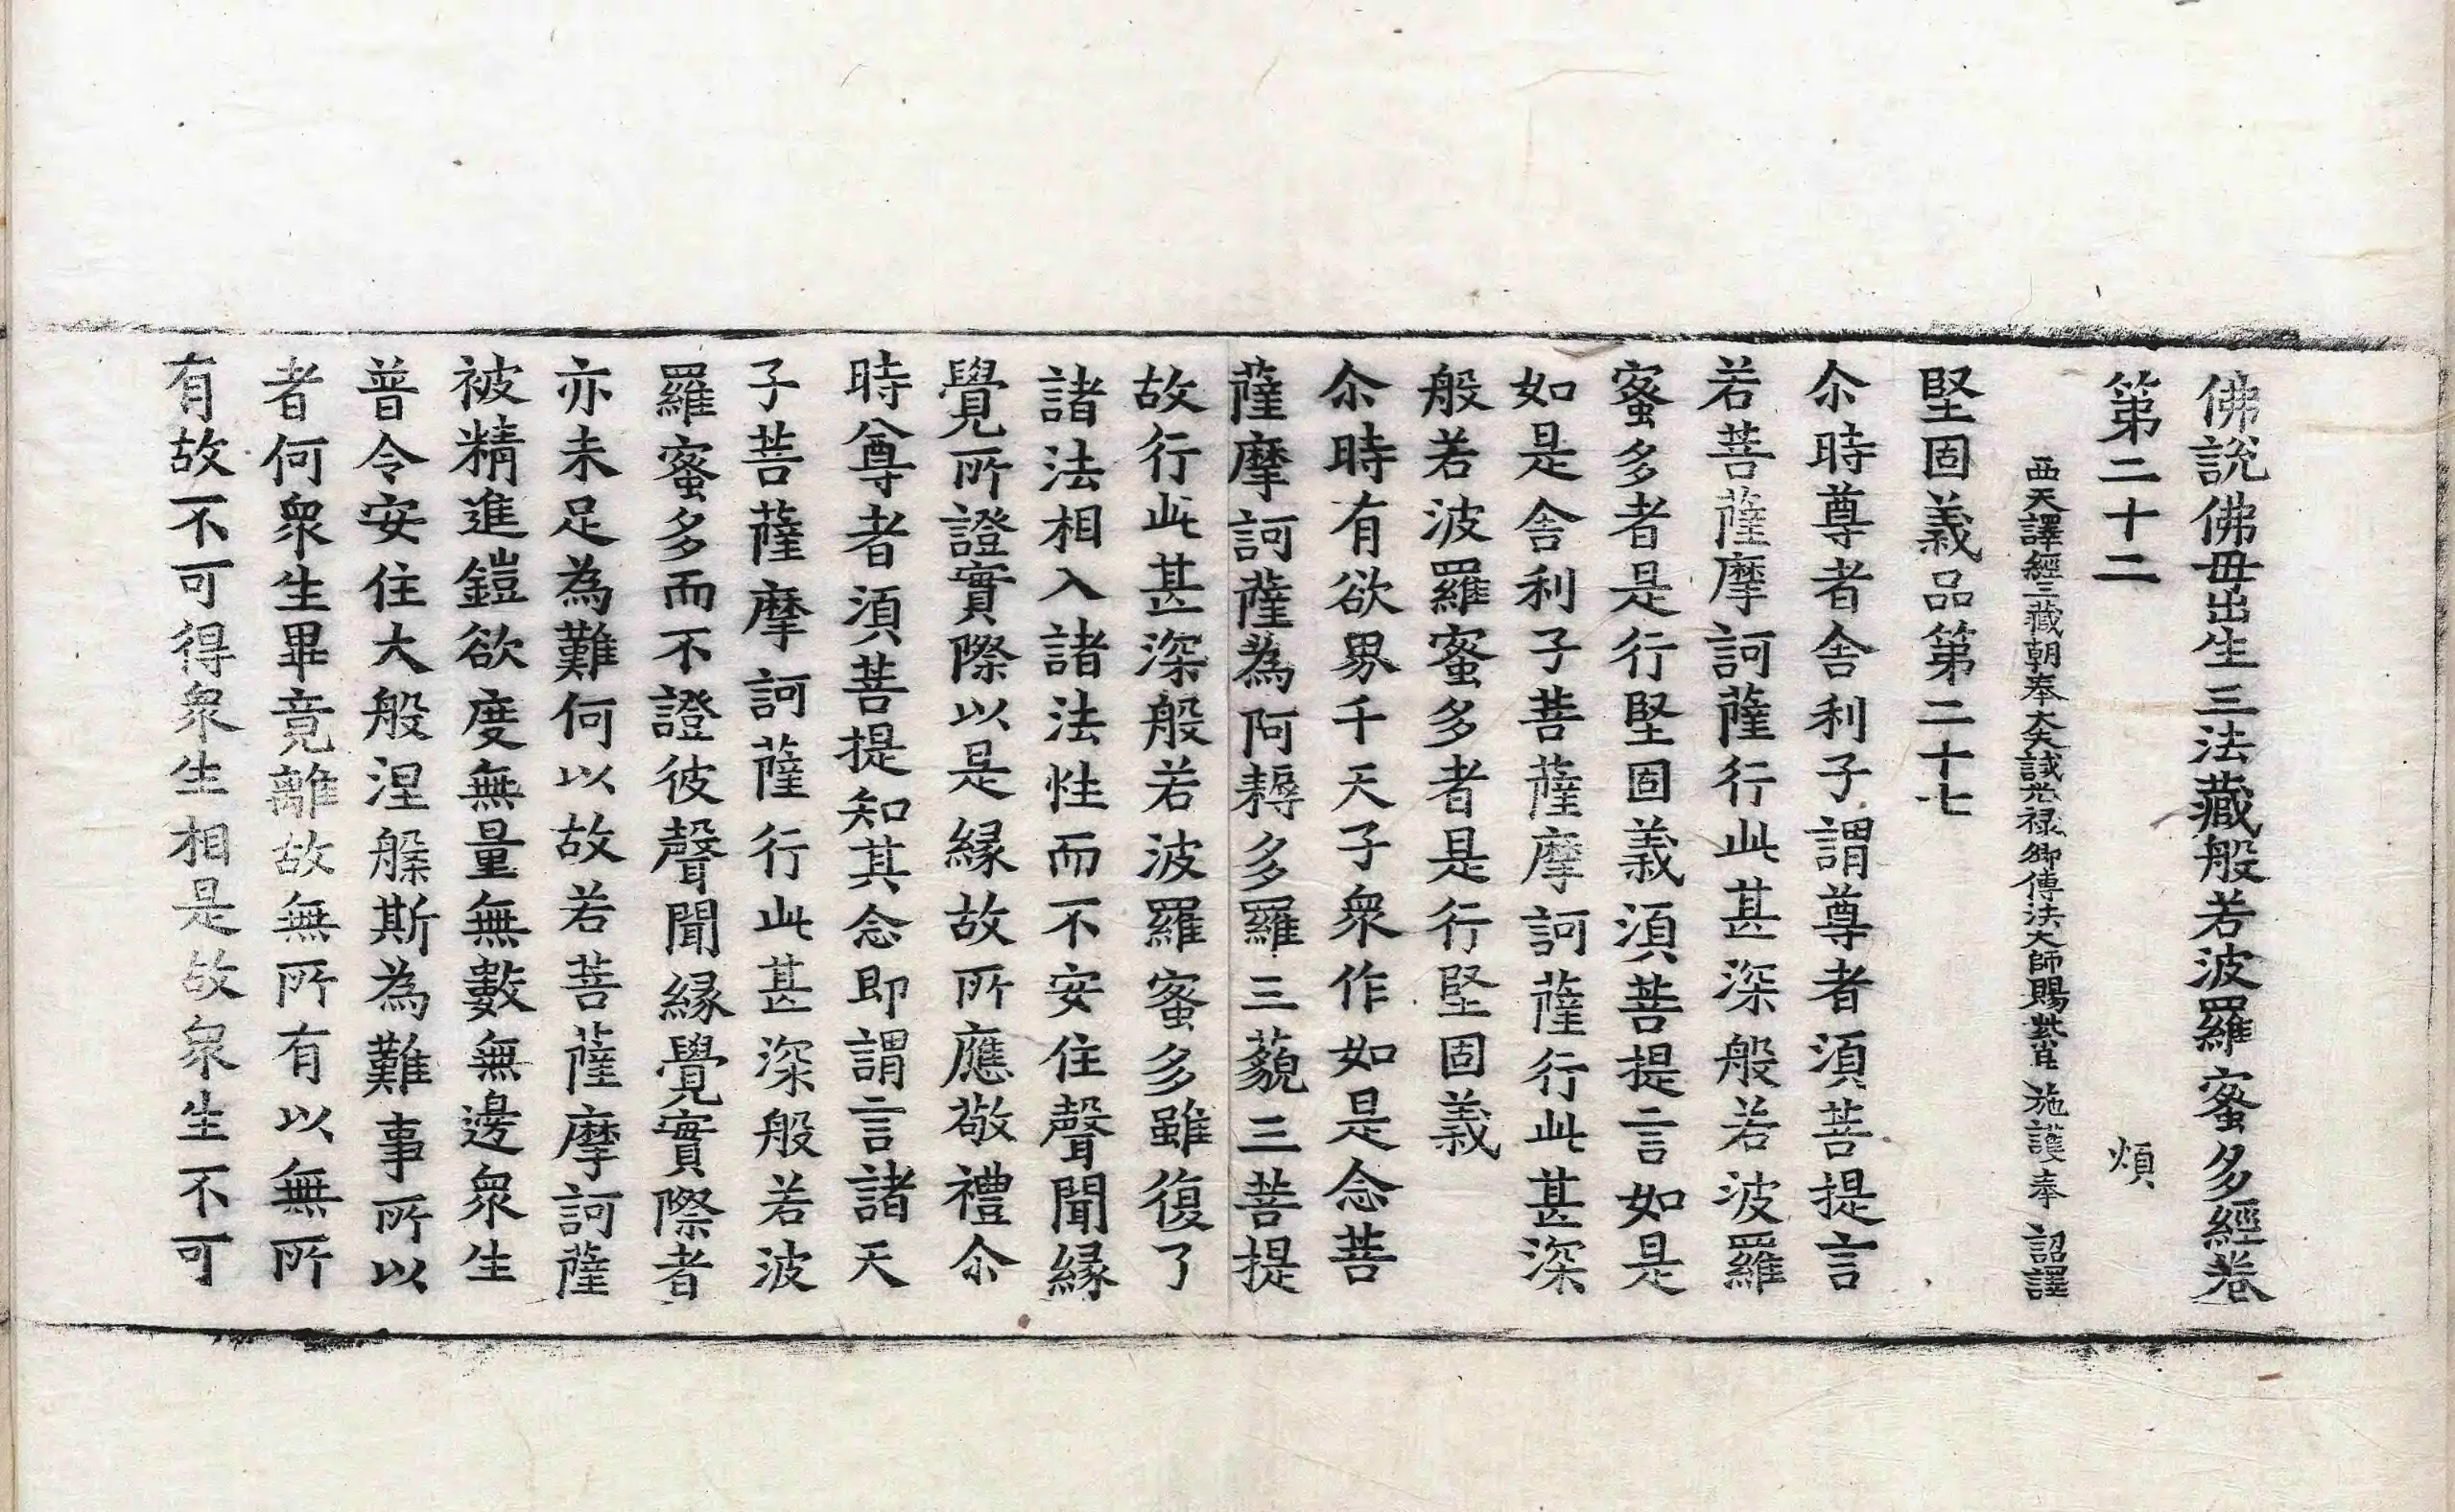 佛說佛毋出生三法藏般若波羅蜜多經卷
第二十二 煩
西天譯經三藏朝奉大夫試光祿卿傳法大師賜紫臣施護奉 詔譯
堅固義品第二十七
尒時尊者舍利子謂尊者須菩提言
若菩薩摩訶薩行此甚深般若波羅
蜜多者是行堅固義須菩提言如是
如是舍利子菩薩摩訶薩行此甚深
般若波羅蜜多者是行堅固義
尒時有欲界千天子衆作如是念菩
薩摩訶薩為阿耨多羅三藐三菩提
故行此甚深般若波羅蜜多雖復了
諸法相入諸法性而不安住聲聞緣
覺所證實際以是緣故所應敬禮尒
時尊者須菩提知其念即謂言諸天
子菩薩摩訶薩行此甚深般若波
羅蜜多而不證彼聲聞緣覺實際者
亦未足為難何以故若菩薩摩訶薩
被精進鎧欲度無量無數無邊衆生
普令安住大般涅槃斯為難事所以
者何衆生畢竟離故無所有以無所
有故不可得衆生相是故衆生不可